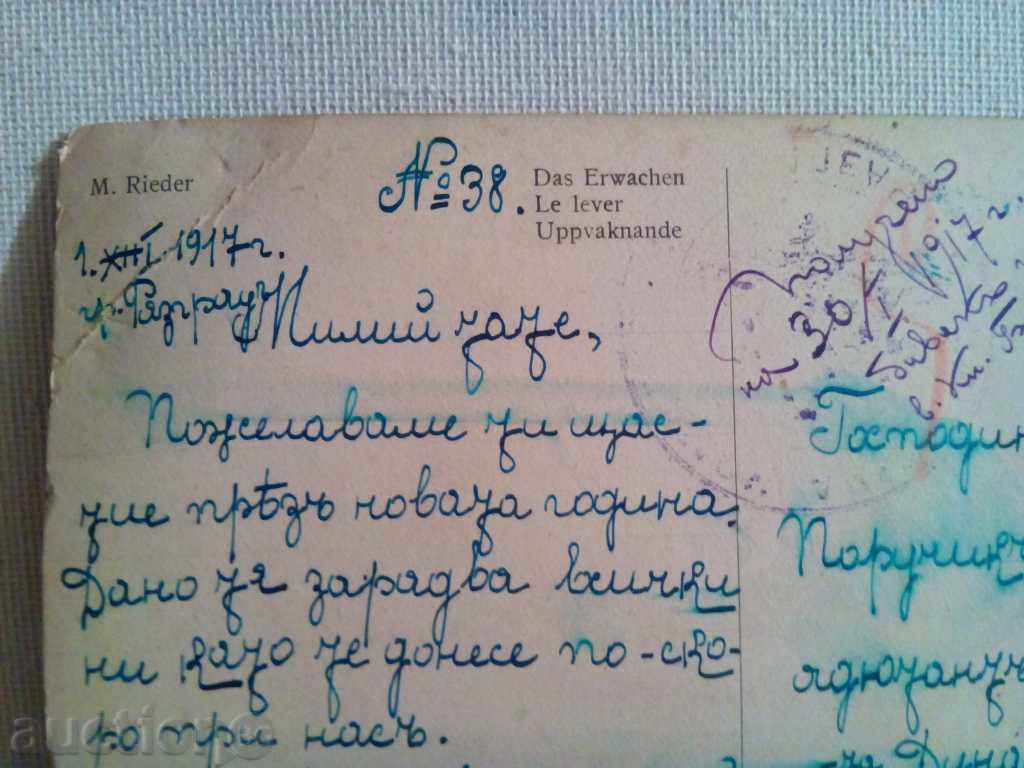 M. Rieder
№ 38.
Das Erwachen
Le lever
Uppvaknande
1. XIII 1917 г.
гр. Разградъ
Милий тате,
Пожелаваме ти щас-
тие прѣзъ новата година.
Дано тя зарадва всички
ни като те донесе по-ско-
ро при насъ.
получено
на 30/I
Господин
Поручикъ
адютантъ